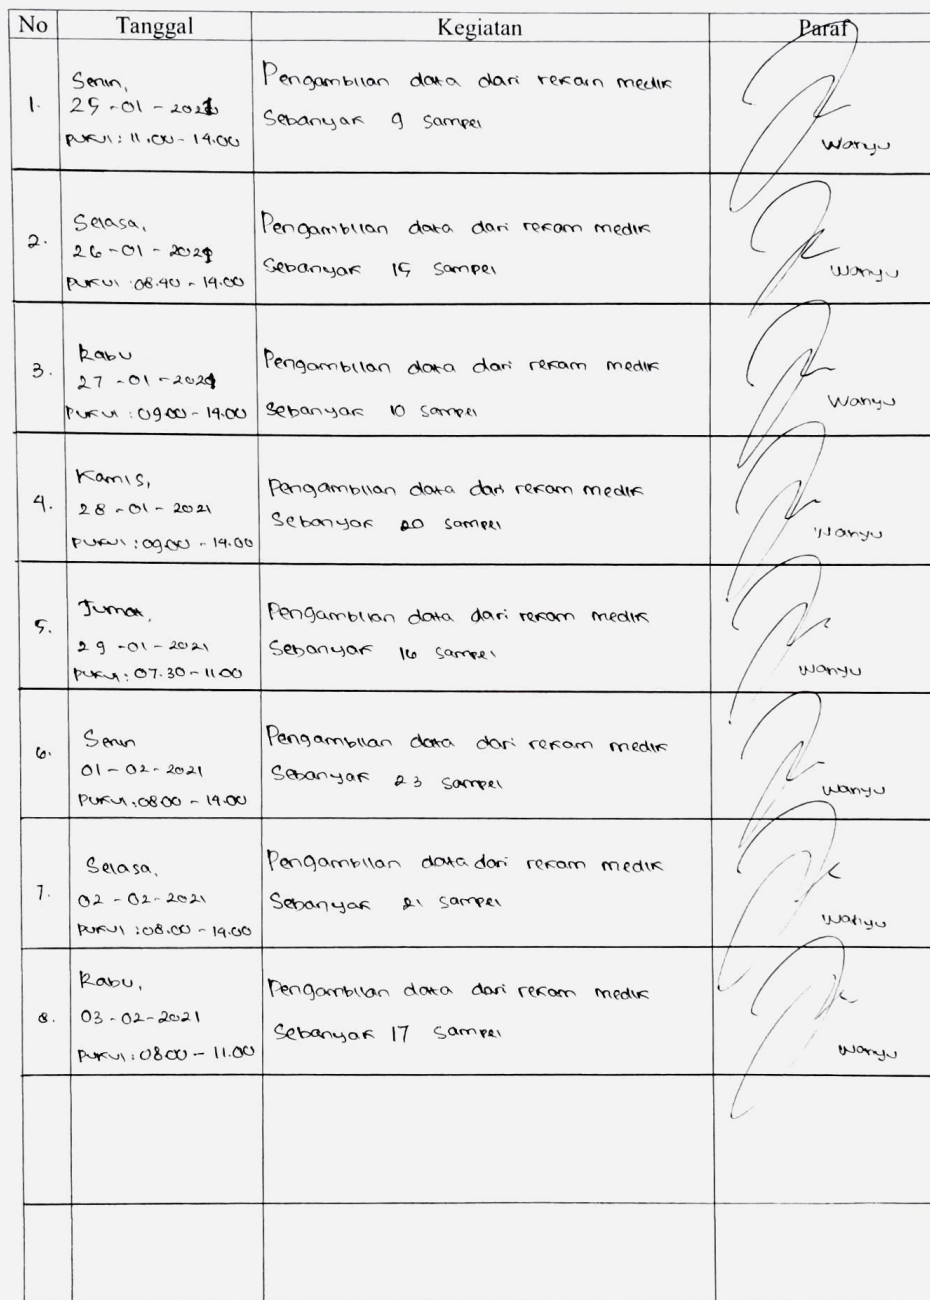 No Tanggal Kegiatan Paraf
1. Senin,
25-01-2021
Pukul: 11.00-14.00
Pengambilan data dari rekam medik
Sebanyak 9 sampel
Wahyu
2. Selasa,
26-01-2021
Pukul: 08.40-14.00
Pengambilan data dari rekam medik
Sebanyak 15 sampel
Wahyu
3. Rabu
27-01-2021
Pukul: 09.00-14.00
Pengambilan data dari rekam medik
Sebanyak 10 sampel
Wahyu
4. Kamis,
28-01-2021
Pukul: 09.00-14.00
Pengambilan data dari rekam medik
Sebanyak 20 sampel
Wahyu
5. Jumat,
29-01-2021
Pukul: 07.30-11.00
Pengambilan data dari rekam medik
Sebanyak 16 sampel
Wahyu
6. Senin
01-02-2021
Pukul: 08.00-14.00
Pengambilan data dari rekam medik
Sebanyak 23 sampel
Wahyu
7. Selasa,
02-02-2021
Pukul: 08.00-14.00
Pengambilan data dari rekam medik
Sebanyak 21 sampel
Wahyu
8. Rabu,
03-02-2021
Pukul: 08.00-11.00
Pengambilan data dari rekam medik
Sebanyak 17 sampel
Wahyu